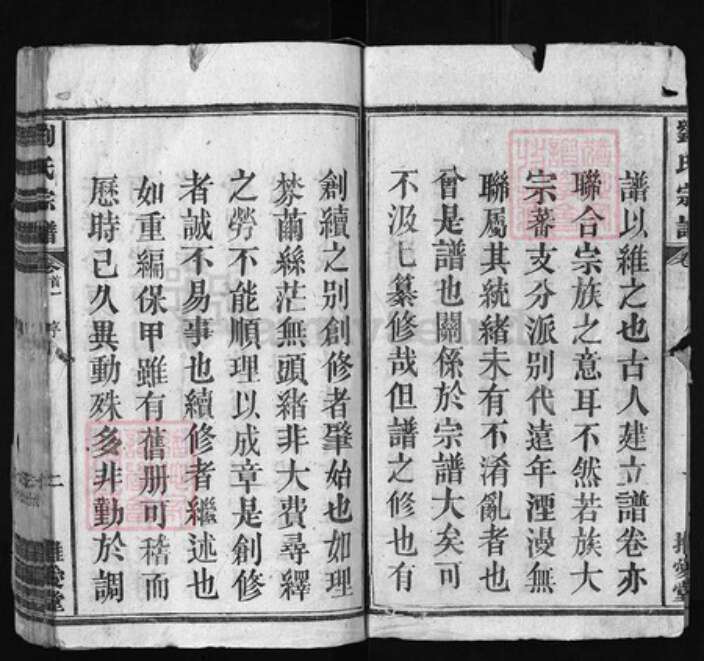 譜以維之也古人建立譜卷亦
聯合宗族之意耳不然若族大
宗蕃支分派别代遠年湮漫無
聯屬其統緒未有不淆亂者也
曾是譜也關係於宗譜大矣可
不汲匕纂修哉但譜之修也有
創續之别創修者肇始也如理
棼繭絲茫無頭緒非大費尋繹
之勞不能順理以成章是創修
者誠不易事也續修者繼述也
如重編保甲雖有舊册可稽而
歷時已久異動殊多非勤於調
劉氏宗譜
卷首一
序
二